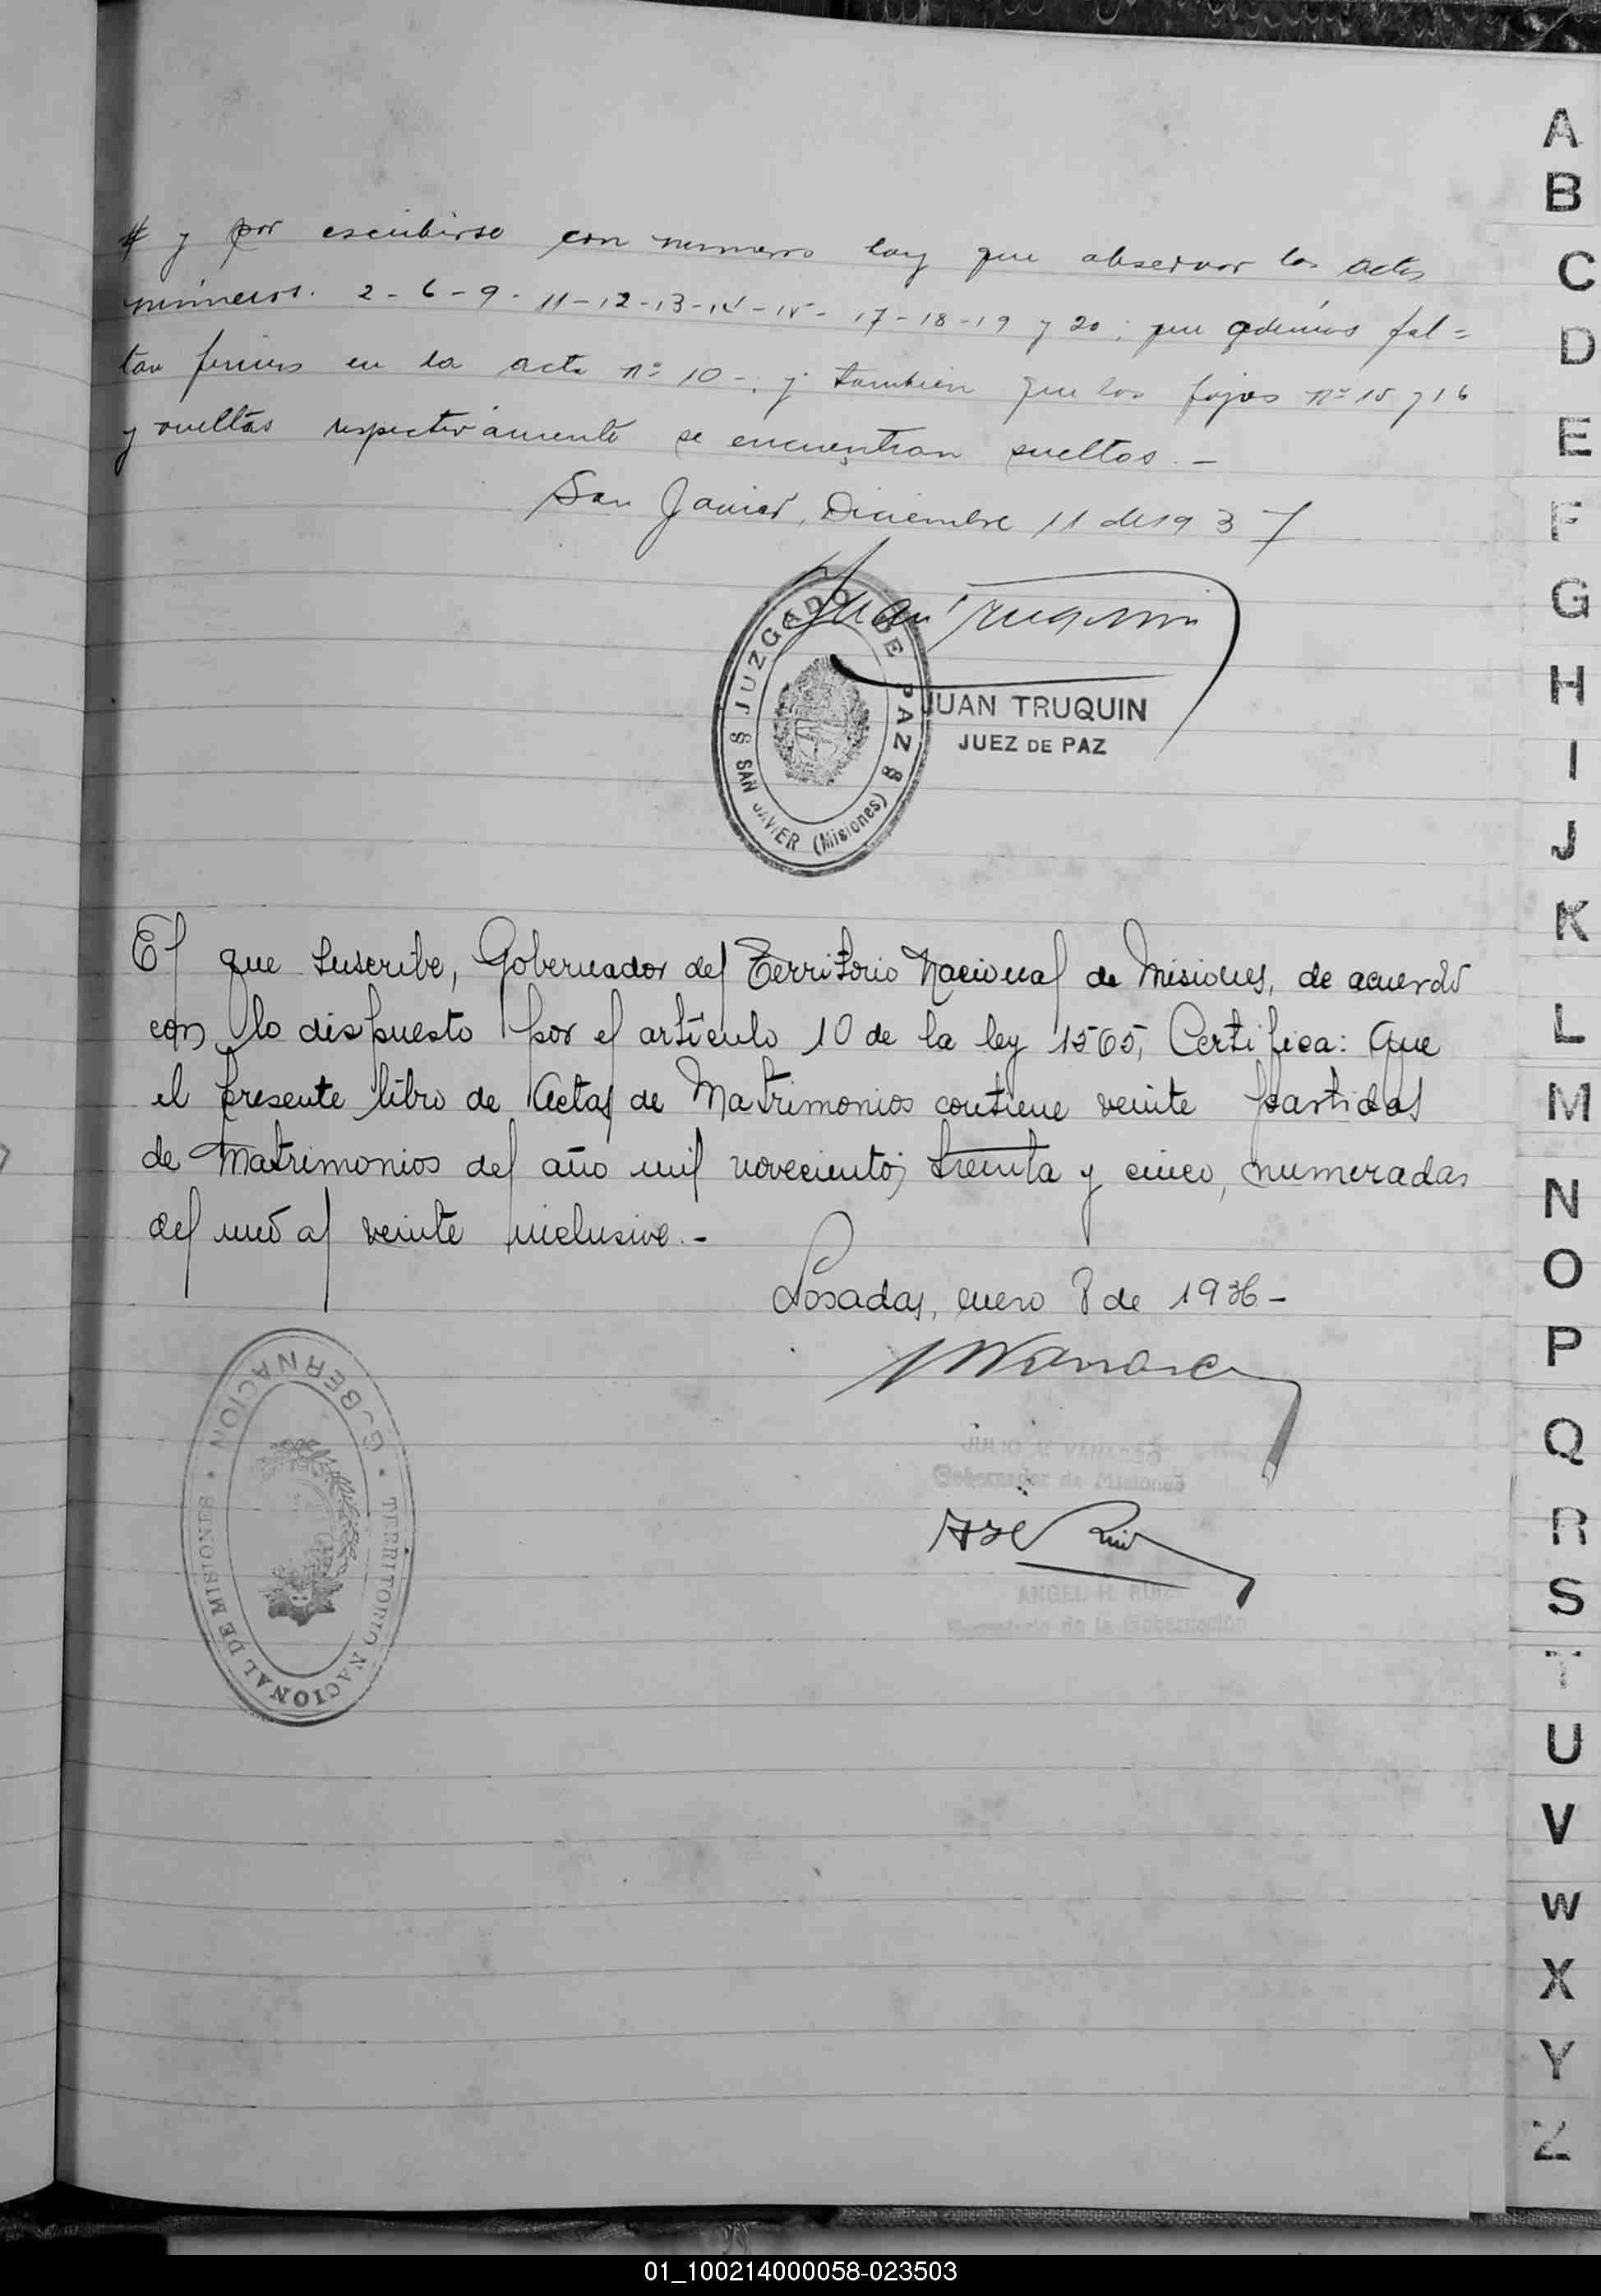 y por escribirse con numeros hay que observar las actas
números. 2-6-9-11-12-13-14-15-17-18-19 y 20; que además fal=
tan firmas en la acta nº 10-; y tambien que las fojas nº 15 y 16
y vueltas respectivamente se encuentran sueltas.-
San Javier, Diciembre 11 de 1937
Juan Truquin
JUZGADO DE PAZ
SAN JAVIER (Misiones)
JUAN TRUQUIN
JUEZ DE PAZ
El que suscribe, Gobernador del Territorio Nacional de Misiones, de acuerdo
con lo dispuesto por el artículo 10 de la ley 1565, Certifica: Que
el presente libro de Actas de Matrimonios contiene veinte partidas
de Matrimonios del año mil novecientos treinta y cinco, numeradas
del uno al veinte inclusive.-
Posadas, enero 8 de 1936-
GOBERNACION
TERRITORIO NACIONAL DE MISIONES
JULIO
Gobernador de Misiones
ANGEL H. RUIZ
Secretario de la Gobernación
A
B
C
D
E
F
G
H
I
J
K
L
M
N
O
P
Q
R
S
T
U
V
W
X
Y
Z
01_100214000058-023503